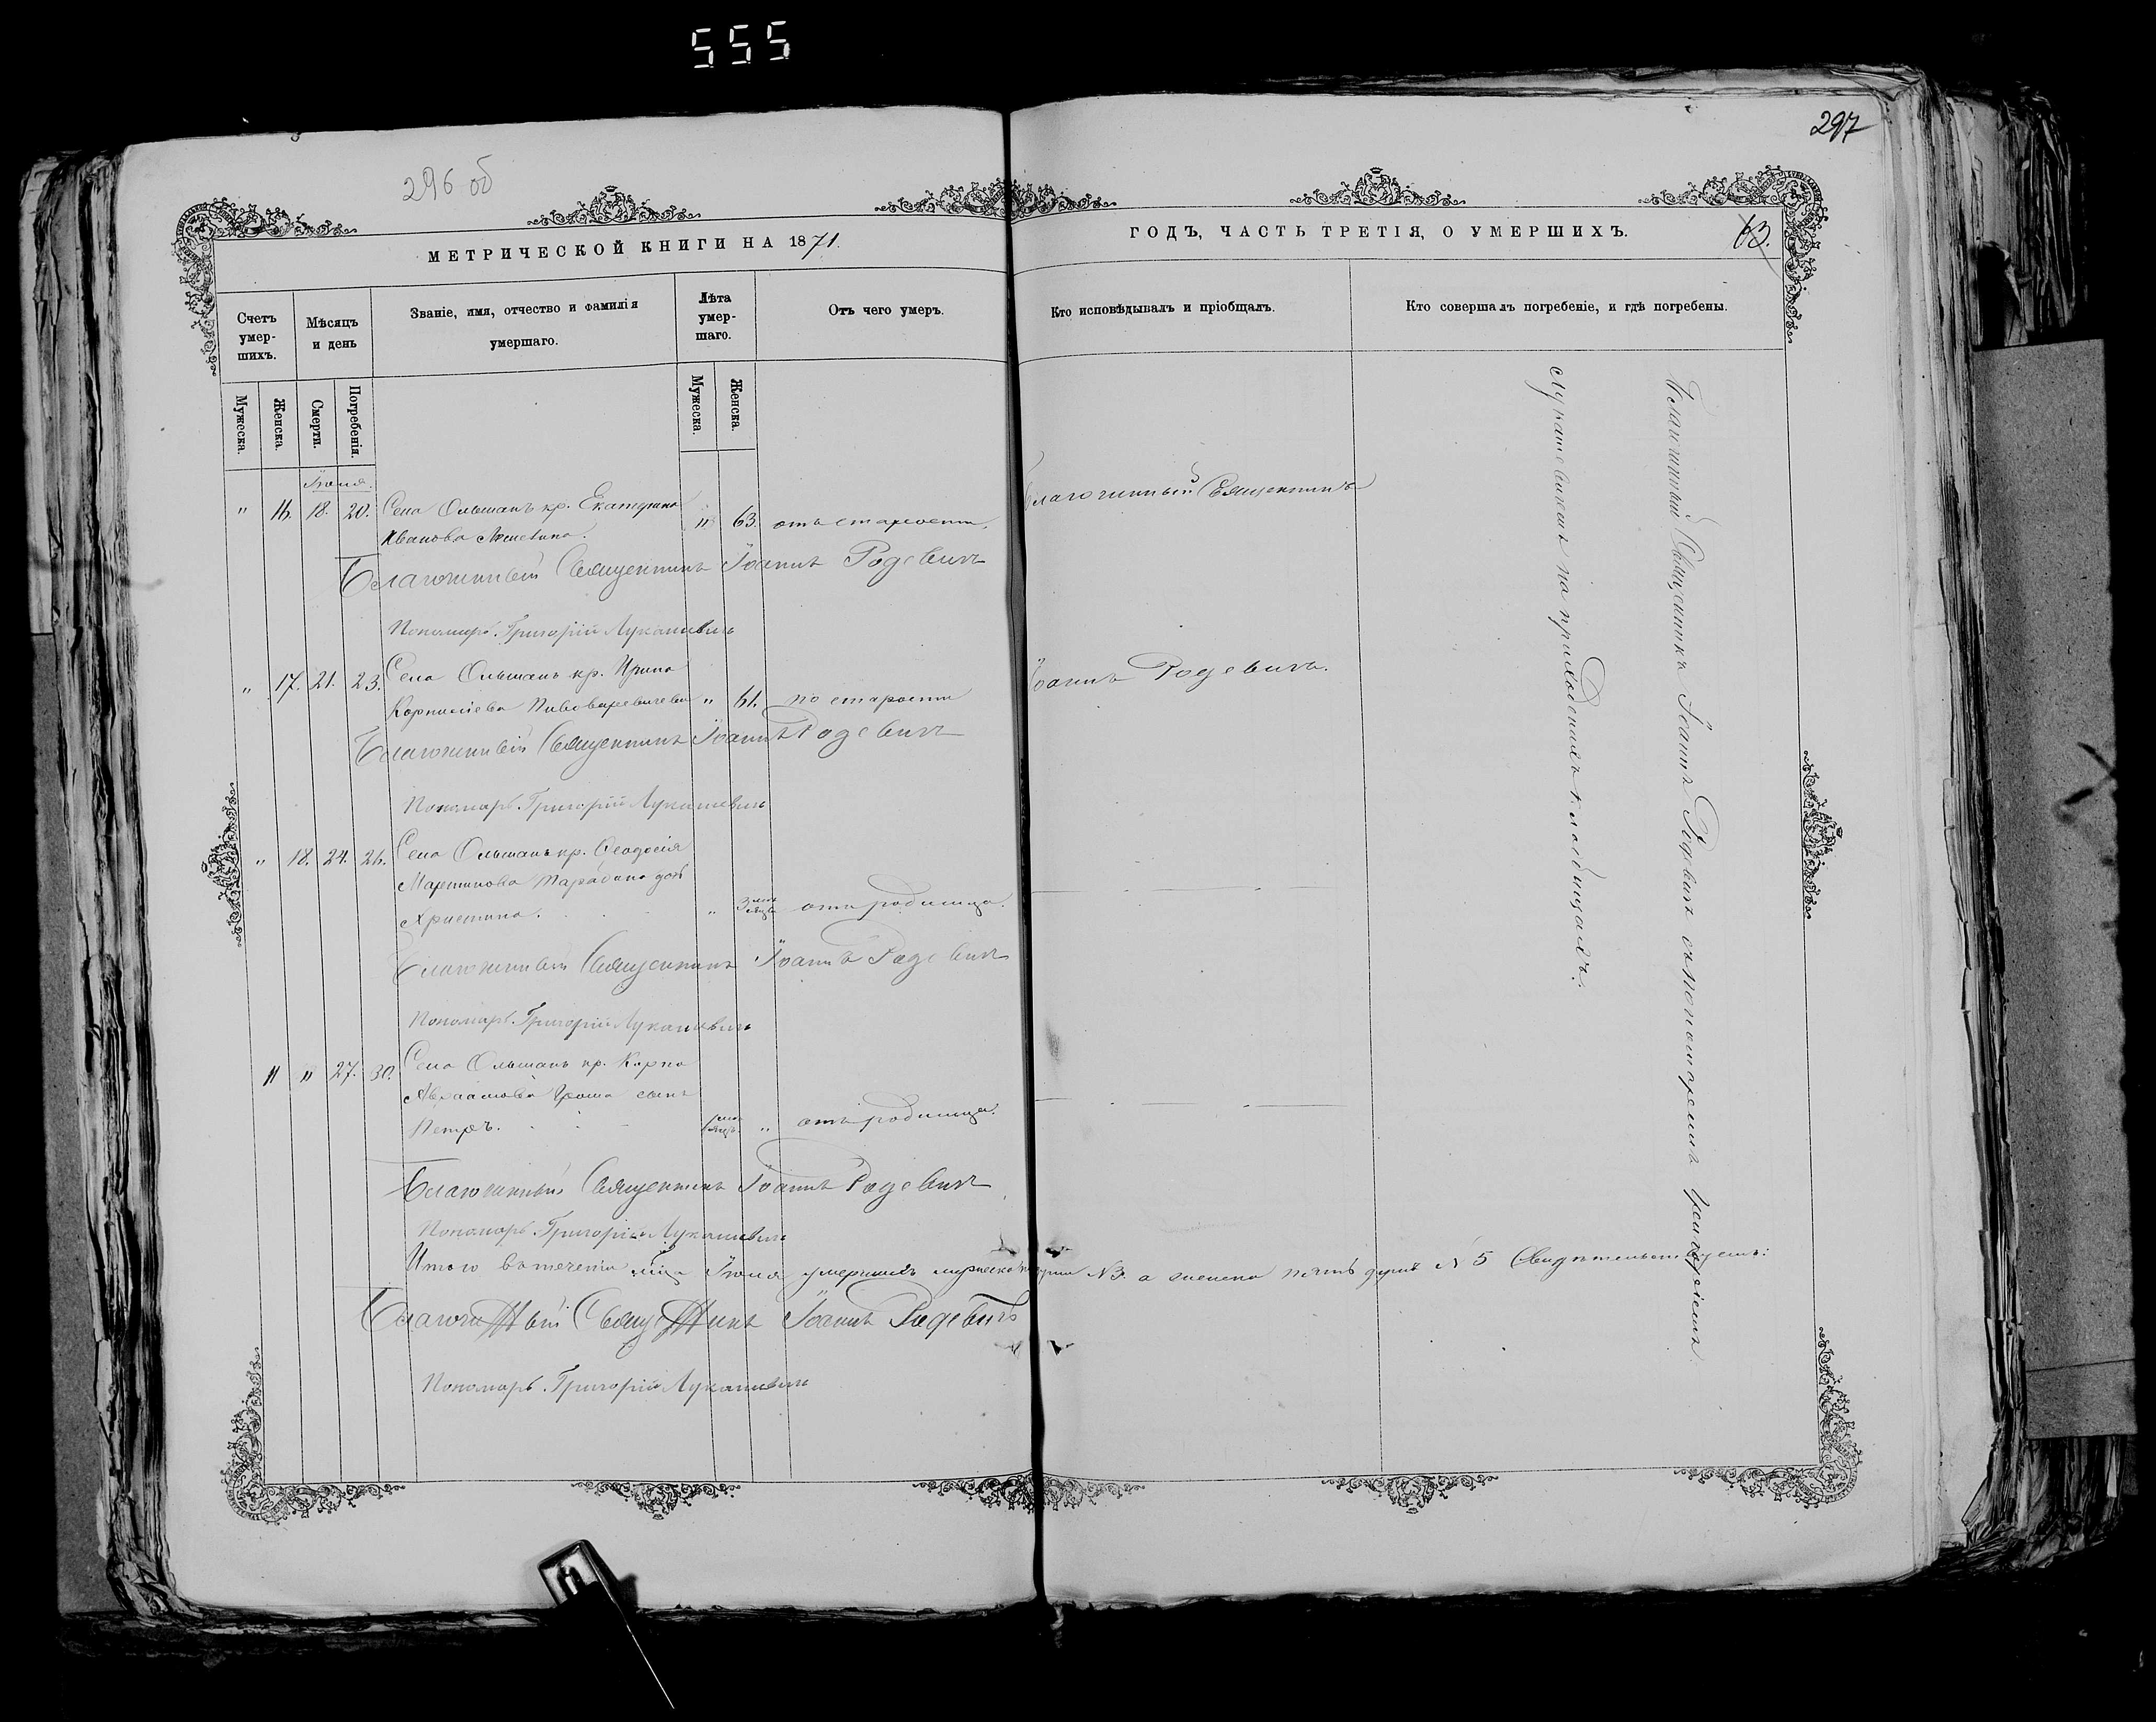 555
297
296 об
МЕТРИЧЕСКОЙ КНИГИ НА 1871.
ГОДЪ, ЧАСТЬ ТРЕТІЯ, О УМЕРШИХЪ.
63.
Счетъ умер-шихъ.
Мѣсяцъ и день
Званіе, имя, отчество и фамилія умершаго.
Лѣта умер-шаго.
Отъ чего умеръ.
Кто исповѣдывалъ и пріобщалъ.
Кто совершалъ погребеніе, и гдѣ погребены.
Мужеска.
Женска.
Смерти.
Погребенія.
Мужеска.
Женска.
Іюня.
" 16. 18. 20. Села Ольшанъ кр. Екатерина " 63. отъ старости.
Иванова
Благочинный Священникъ
Благочинный Священникъ Іоаннъ Родевичъ
Пономарь Григорій Лукашевичъ
" 17. 21. 23. Села Ольшанъ кр. Ирина
Корниліева Пивоваревичева " 61. по старости
Іоаннъ Родевичъ.
Благочинный Священникъ Іоаннъ Родевичъ
Пономарь Григорій Лукашевичъ
" 18. 24. 26. Села Ольшанъ кр. Ѳеодосія
Мартинова дочь
Христина. " 3 отъ родимца.
Благочинный Священникъ Іоаннъ Родевичъ
Пономарь Григорій Лукашевичъ
11 " 27. 30. Села Ольшанъ кр. Карпа
Авраамова сынъ
Петръ. " отъ родимца.
Благочинный Священникъ Іоаннъ Родевичъ
Пономарь Григорій Лукашевичъ
Итого въ теченіи Іюня умершихъ мужеска № 3. а женска пять душъ № 5
Благочинный Священникъ Іоаннъ Родевичъ
Пономарь Григорій Лукашевичъ
Благочинный Священникъ Іоаннъ Родевичъ съ пономаремъ Григоріемъ
Лукашевичемъ на приходскихъ кладбищахъ.